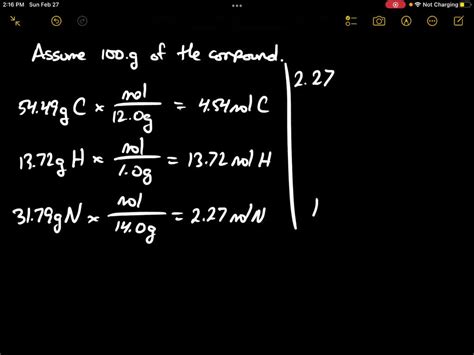 2:16 PM Sun Feb 27
Not Charging
Assume 100.g of the compound.
54.49g C × mol / 12.0g = 4.54 mol C
13.72g H × mol / 1.0g = 13.72 mol H
31.79g N × mol / 14.0g = 2.27 mol N
2.27
1